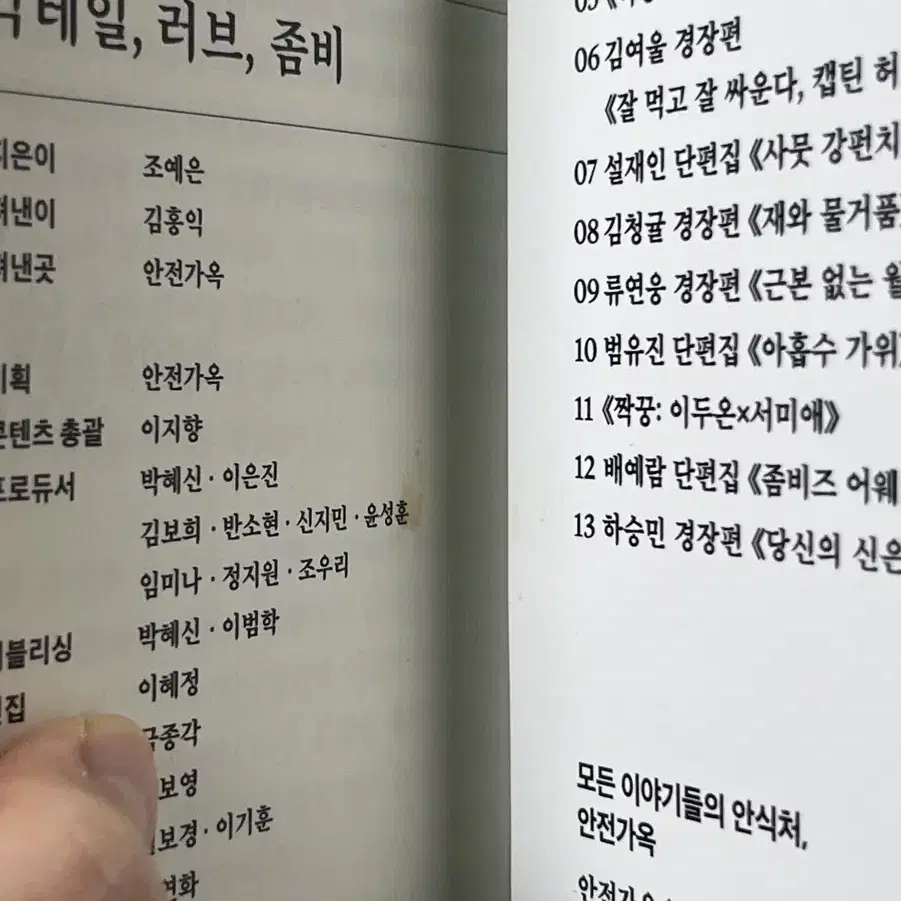 테일, 러브, 좀비
지은이 조예은
펴낸이 김홍익
펴낸곳 안전가옥
기획 안전가옥
콘텐츠 총괄 이지향
프로듀서 박혜신 · 이은진
김보희 · 반소현 · 신지민 · 윤성훈
임미나 · 정지원 · 조우리
퍼블리싱 박혜신 · 이범학
편집 이혜정
종각
보영
보경 · 이기훈
06 김여울 경장편
《잘 먹고 잘 싸운다, 캡틴 허
07 설재인 단편집 《사뭇 강펀치
08 김청귤 경장편 《재와 물거품》
09 류연웅 경장편 《근본 없는 월
10 범유진 단편집 《아홉수 가위》
11 《짝꿍: 이두온x서미애》
12 배예람 단편집 《좀비즈 어웨
13 하승민 경장편 《당신의 신은
모든 이야기들의 안식처,
안전가옥